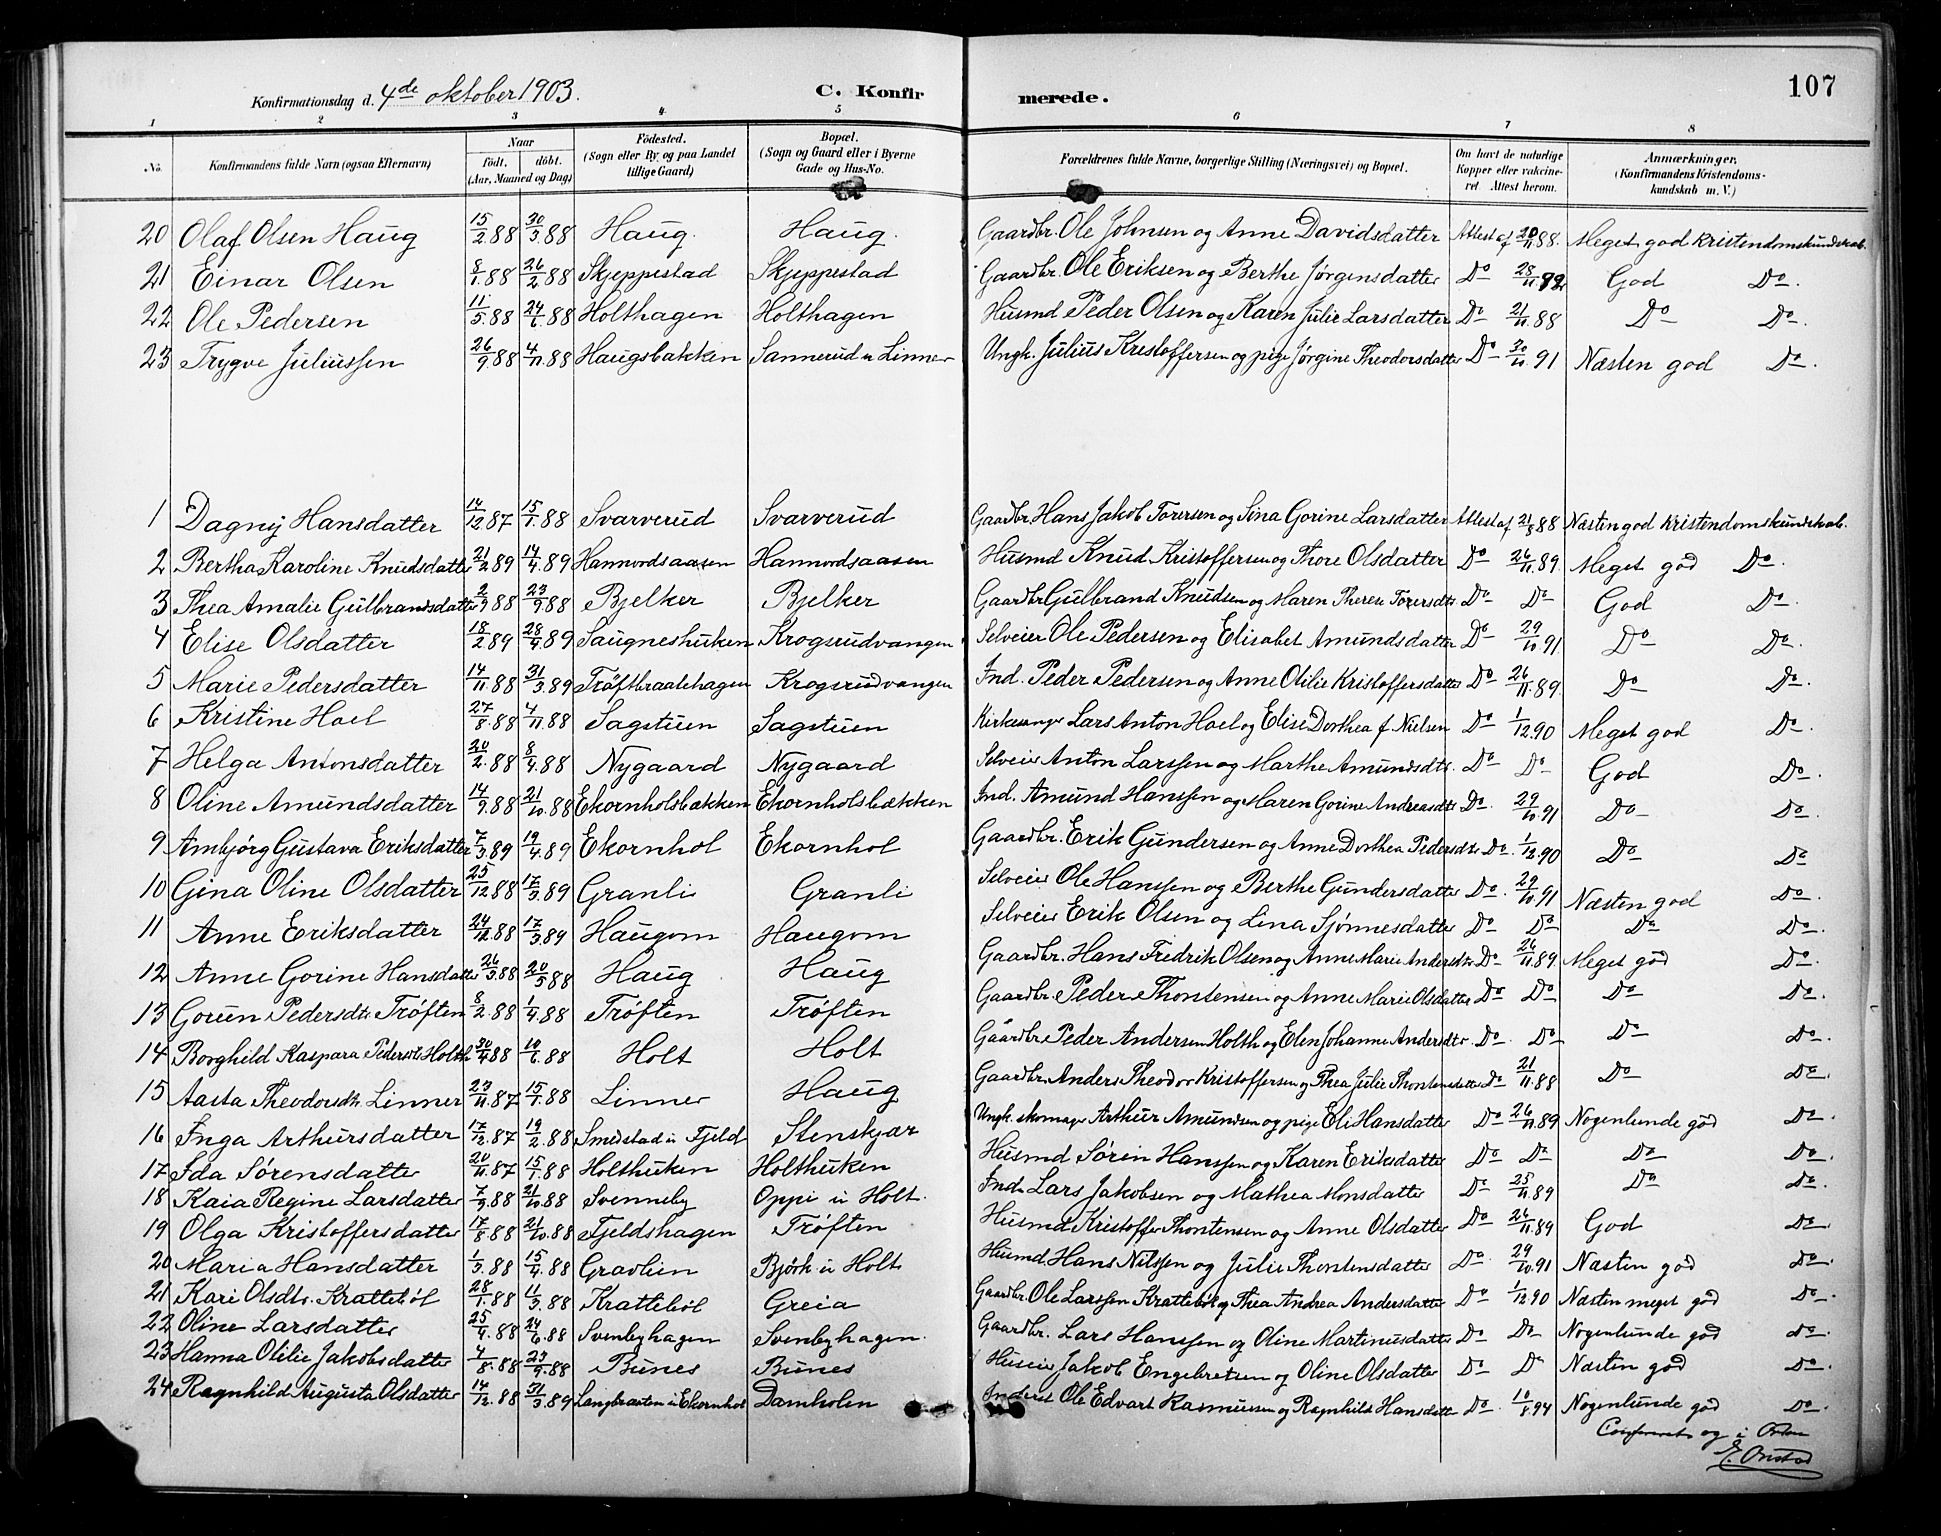 107
Konfirmationsdag d. 4de oktober 1903. C. Konfirmerede.
1 2 3 4 5 6 7 8
No. Konfirmandens fulde Navn (ogsaa Efternavn) Naar født, døbt. (Aar, Maaned og Dag) Fødested. (Sogn eller By og paa Landet tillige Gaard) Bopæl. (Sogn og Gaard eller i Byerne Gade og Hus-No. Forældrenes fulde Navne, borgerlige Stilling (Næringsvei) og Bopæl. Om havt de naturlige Kopper eller vakcineret. Attest herom. Anmærkninger, (Konfirmandens Kristendomskundskab m. V.)
20 Olaf Olsen Haug 15/2.88 30/3.88 Haug. Haug. Gaardbr. Ole Johnsen og Anne Davidsdatter Attest af 20/11.88. Meget god kristendomskundskab.
21 Einar Olsen 8/1.88 26/2.88 Skjeppestad Skjeppestad Gaardbr. Ole Eriksen og Berthe Jørgensdatter Do 28/11.92 God Do.
22 Ole Pedersen 11/5.88 24/6.88 Holthagen Holthagen Husmd Peder Olsen og Karen Julie Larsdatter Do 21/11.88 Do Do.
23 Trygve Juliussen 26/9.88 4/11.88 Haugsbakken Sannerud u Linner Ungk. Julius Kristoffersen og pige Jørgine Theodorsdatter Do 30/10.91 Næsten god Do.
1 Dagny Hansdatter 14/12.87 15/1.88 Svarverud Svarverud Gaardbr. Hans Jakob Torersen og Sina Gorine Larsdatter Attest af 21/8 88 Næsten god kristendomskundskab.
2 Bertha Karoline Knudsdatter 21/2 89 14/4.89 Hannordsaasen Hannordsaasen Husmd Knud Kristoffersen og Thore Olsdatter Do 26/11.89. Meget god Do.
3 Thea Amalie Gulbrandsdatter 2/9 88 23/9.88 Bjelker Bjelker Gaardbr Gulbrand Knudsen og Maren Therese Torersdtr Do Do God Do.
4 Elise Olsdatter 18/2 89 28/4.89 Saugneshuken Krogsrudvangen Selveier Ole Pedersen og Elisabet Amundsdatter Do 29/10.91 Do Do.
5 Marie Pedersdatter 14/11.88 31/3.89 Trøftbraatehagen Krogsrudvangen Ind. Peder Pedersen og Anne Otilie Kristoffersdatter Do 26/11.89. Do Do.
6 Kristine Hoel 27/8.88 4/11.88 Sagstuen Sagstuen Kirkesanger Lars Anton Hoel og Elise Dorthea f. Nielsen Do 1/12.90 Meget god Do.
7 Helga Antonsdatter 20/2.88 8/4.88 Nygaard Nygaard Selveier Anton Larssen og Marthe Amundsdtr. Do Do God Do.
8 Oline Amundsdatter 14/9.88 21/10.88 Ekornholsbækken Ekornholsbækken Ind. Amund Hanssen og Maren Gorine Andreasdtr Do. 29/10.91 Do Do.
9 Ambjørg Gustava Eriksdatter 7/3.89 19/4.89 Ekornhol Ekornhol Gaardbr. Erik Gundersen og Anne Dorthea Pedersdtr Do. 1/12.90 Do Do
10 Gina Oline Olsdatter 25/12.88 17/3.89 Granli Granli Selveier Ole Hanssen og Berthe Gundersdatter Do. 29/10.91 Næsten god Do.
11 Anne Eriksdatter 24/12.88 17/3.89 Haugom Haugom Selveier Erik Olsen og Lina Sjønnesdatter Do Do Do Do.
12 Anne Gorine Hansdatter 26/3.88 20/5 88 Haug Haug Gaardbr. Hans Fredrik Olsen og Anne Marie Andersdtr Do 26/11.89. Meget god Do.
13 Gorun Pedersdtr Trøften 8/2.88 1/4.88 Trøften Trøften Gaardbr. Peder Thorstensen og Anne Marie Olsdatter Do Do Do Do.
14 Borghild Kaspara Pedersdtr Holth 30/4.88 10/6.88 Holt Holt Gaardbr Peder Andersen Holth og Elen Johanne Andersdtr. Do. Do Do Do.
15 Aasta Theodorsdtr. Linner 23/11.87 15/1.88 Linner Haug Gaardbr. Anders Theodor Kristoffersen og Thea Julie Thorstensdatter Do 21/11.88 Do Do.
16 Inga Arthursdatter 17/12.87 19/2.88 Smedstad u Fjeld Stenskjær Ungk. skomager Arthur Amundsen og pige Eli Hansdatter Do 26/11 89 Nogenlunde god Do.
17 Ida Sørensdatter 20/11.87 15/1.88 Holthuken Holthuken Husmd Sørin Hanssen og Karen Eriksdatter Do Do Do Do.
18 Kaia Regine Larsdatter 7/9.88 21/10.88 Svenneby Oppi u Holt. Ind. Lars Jakobsen og Mathea Monsdatter Do 25/11.89 Do Do.
19 Olga Kristoffersdatter 17/8.88 21/10.88 Fjeldshagen Trøften Husmd Kristoffer Thorstensen og Anne Olsdatter Do 26/11.89 God Do
20 Maria Hansdatter 1/3.88 15/4.88 Gravlien Bjørk u Holt Husmd Hans Nilssen og Julie Thorstensdatter Do. 29/10.91 Næsten god Do
21 Kari Olsdtr. Krattebøl 28/1.88 11/3.88 Krattebøl Greia Gaardbr. Ole Larssen Krattebøl og Thea Andrea Andersdatter Do 1/12.90 Næsten meget god Do.
22 Oline Larsdatter 25/4.88 24/6.88 Svenbyhagen Svenbyhagen. Gaardbr. Lars Hanssen og Oline Martinusdatter Do Do Nogenlunde god Do.
23 Hanna Otilie Jakobsdatter 4/8.88 23/9.88 Bunes Bunes Jakob Engebretsen og Oline Olsdatter Do Do Næsten god Do
24 Ragnhild Augusta Olsdatter 14/12.88 31/3.89 Langbraaten u Ekornhol Damholen Inderst Ole Edvart Rasmussen og Ragnhild Hansdatter Do. 10/8.94 Nogenlunde god Do.
og i Orden